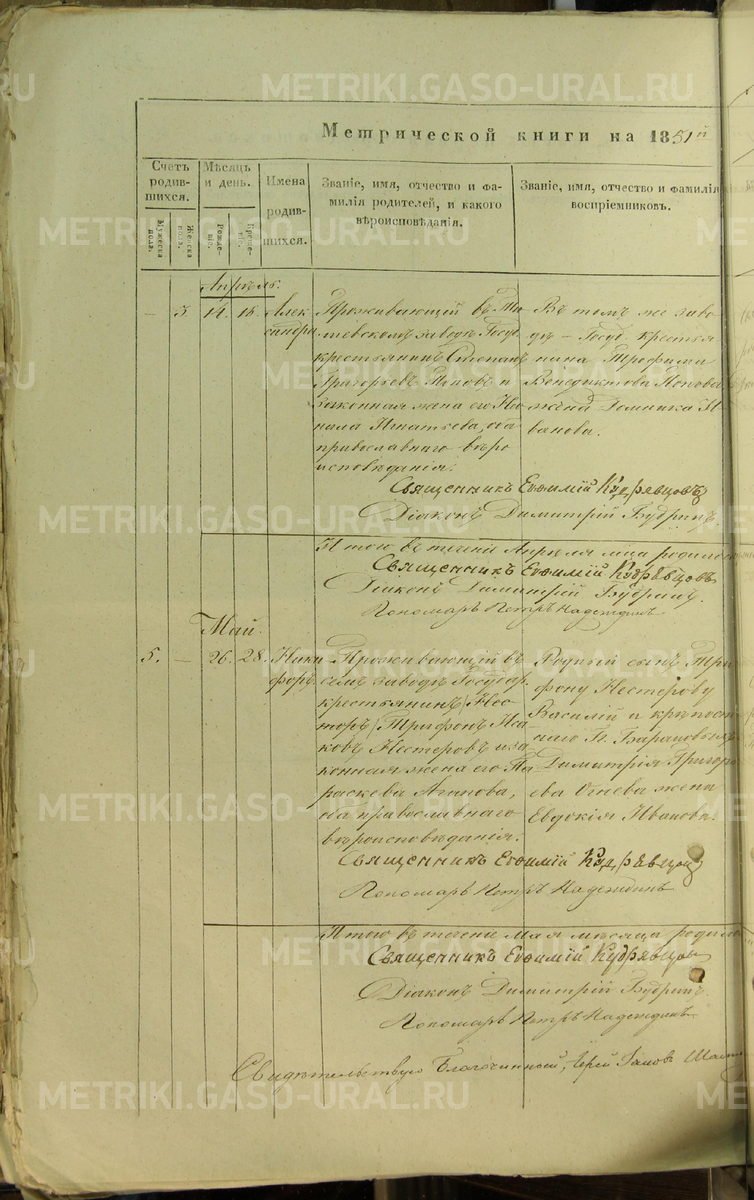 METRIKI.GASO-URAL.RU
Метрической книги на 1851й
Счетъ родившихся.
Мѣсяцъ и день.
Имена родившихся.
Званіе, имя, отчество и фамилія родителей, и какого вѣроисповѣданія.
Званіе, имя, отчество и фамилія воспріемниковъ.
Мужеска пола.
Женска пола.
Рожденіе.
Крещеніе.
Апрѣль.
— 3. 14. 16.
Алек
сандра
Проживающій въ
заводѣ Госуд.
крестьянинъ Степанъ
Григорьевъ Поповъ и
законная жена его Нео
нила Игнатьева, оба
православнаго вѣро
исповѣданія.
Въ томъ же заво
дѣ — Госуд. крестья
нина Трофима
Венедиктова Попова
жена Домника И
ванова.
Священникъ Евѳимій Кудрявцовъ
Діаконъ Димитрій Будринъ.
Итого въ теченіи Апрѣля мца родилось
Священникъ Евѳимій Кудрявцовъ
Діаконъ Димитрій Будринъ.
Пономарь Петръ Надеждинъ
Май.
5. — 26. 28.
Ники
форъ.
Проживающій въ
семъ заводѣ Государ.
крестьянинъ
Трифонъ Иса
ковъ Нестеровъ и за
конная жена его Па
раскева Агапова,
оба православнаго
вѣроисповѣданія.
Родный сынъ Три
фону Нестерову
Василій и крѣпост
наго
Димитрія Григорь
ева Огнева жена
Евдокія Иванова.
Священникъ Евѳимій Кудрявцовъ
Пономарь Петръ Надеждинъ
Итого въ теченіи Мая мѣсяца родилось
Священникъ Евѳимій Кудрявцовъ
Діаконъ Димитрій Будринъ
Пономарь Петръ Надеждинъ
Свидѣтельствую Благочинный, Іерей Іаковъ